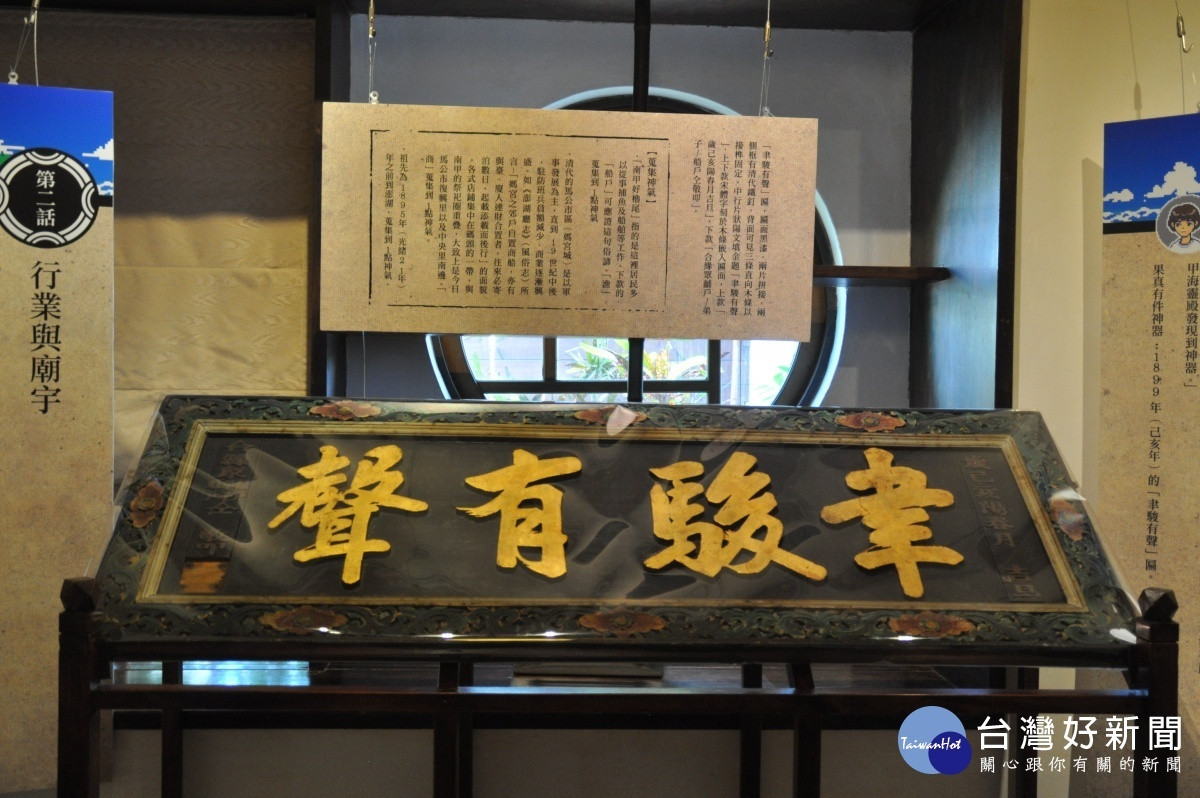 第二話
行業與廟宇
「聿駿有聲」匾，匾面黑漆，兩片拼接，兩
側框有清代鐵釘，背面可見三條直向木條以
接榫固定，中行片狀陽文填金題「聿駿有聲
」，上下款宋體字刻於木條嵌入匾面，上款「
歲己亥陽春月吉旦」，下款「合緣眾舖戶/弟
子/船戶仝敬叩」。
【蒐集神氣】
「南甲好櫓尾」指的是這裡居民多
以從事捕魚及船舶等工作，下款的
「船戶」可應證這句俗諺，「漁」
蒐集到1點神氣
．清代的馬公市區（媽宮城）是以軍
事發展為主，直到19世紀中後
，駐防班兵員額減少，商業逐漸興
盛，如《澎湖廳志》（風俗志）所
言「媽宮之郊戶自置商船，亦有
與臺、廈人連財合置者，往來必寄
泊數日，起載添載而後行」的面貌
，各式店鋪集中在碼頭的一帶，與
南甲的祭祀圈重疊，大致上是今日
馬公市復興里以及中央里南邊，「
商」蒐集到1點神氣。
．祖先為1895年（光緒21年）
年之前到澎湖，蒐集到1點神氣
聿駿有聲
吉旦
甲海靈殿發現到神器，」
果真有件神器：1899年（己亥年）的「聿駿有聲」匾。
TaiwanHot
台灣好新聞
關心跟你有關的新聞